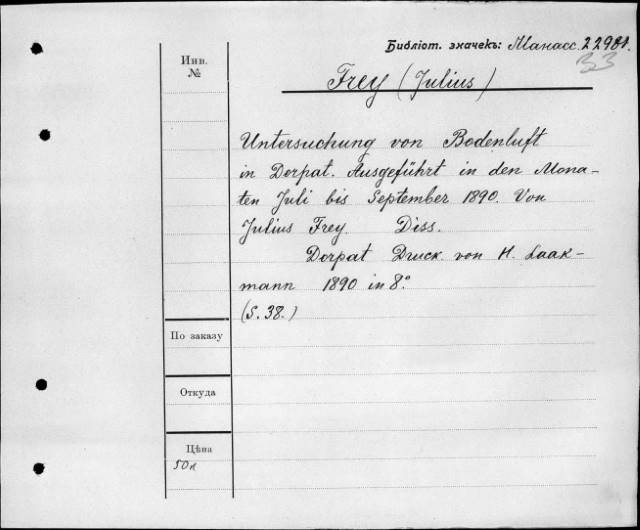 Библіот. значекъ: Манасс. 2298
33
Инв.
№
Frey (Julius)
Untersuchung von Bodenluft
in Dorpat. Ausgeführt in den Mona-
ten Juli bis September 1890. Von
Julius Frey. Diss.
Dorpat Druck von H. Laak-
mann 1890 in 8°
(S. 38.)
По заказу
Откуда
Цѣна
50к